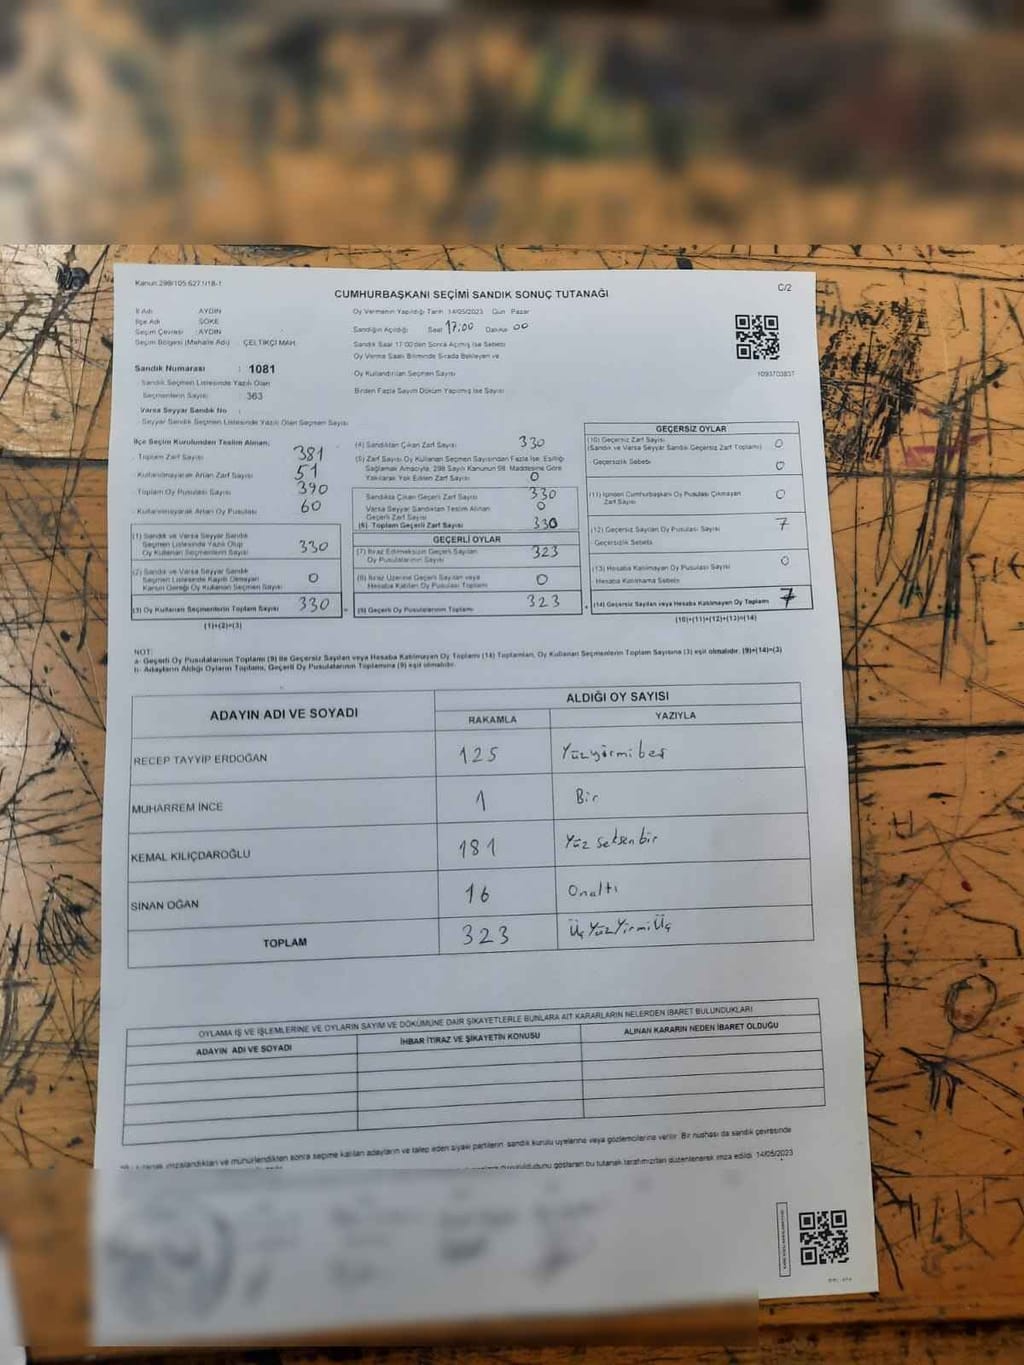 Kanun:298/105.6271/18-1
C/2
CUMHURBAŞKANI SEÇİMİ SANDIK SONUÇ TUTANAĞI
İl Adı AYDIN
İlçe Adı SÖKE
Seçim Çevresi AYDIN
Seçim Bölgesi (Mahalle Adı) ÇELTİKÇİ MAH.
Sandık Numarası : 1081
Sandık Seçmen Listesinde Yazılı Olan
Seçmenlerin Sayısı : 363
Varsa Seyyar Sandık No :
Seyyar Sandık Seçmen Listesinde Yazılı Olan Seçmen Sayısı
Oy Vermenin Yapıldığı Tarih 14/05/2023 Gün Pazar
Sandığın Açıldığı Saat 17:00 Dakika 00
Sandık Saat 17:00'den Sonra Açılmış İse Sebebi
Oy Verme Saati Bitiminde Sırada Bekleyen ve
Oy Kullandırılan Seçmen Sayısı
Birden Fazla Sayım Döküm Yapılmış İse Sayısı
1093703837
İlçe Seçim Kurulundan Teslim Alınan;
Toplam Zarf Sayısı 381
Kullanılmayarak Artan Zarf Sayısı 51
Toplam Oy Pusulası Sayısı 390
Kullanılmayarak Artan Oy Pusulası 60
(1) Sandık ve Varsa Seyyar Sandık
Seçmen Listesinde Yazılı Olup
Oy Kullanan Seçmenlerin Sayısı 330
(2) Sandık ve Varsa Seyyar Sandık
Seçmen Listesinde Kayıtlı Olmayan
Kanun Gereği Oy Kullanan Seçmen Sayısı 0
(3) Oy Kullanan Seçmenlerin Toplam Sayısı 330
(1)+(2)=(3)
(4) Sandıktan Çıkan Zarf Sayısı 330
(5) Zarf Sayısı Oy Kullanan Seçmen Sayısından Fazla İse, Eşitliği
Sağlamak Amacıyla, 298 Sayılı Kanunun 98. Maddesine Göre
Yakılarak Yok Edilen Zarf Sayısı 0
Sandıkta Çıkan Geçerli Zarf Sayısı 330
Varsa Seyyar Sandıktan Teslim Alınan
Geçerli Zarf Sayısı 0
(6) Toplam Geçerli Zarf Sayısı 330
GEÇERLİ OYLAR
(7) İtiraz Edilmeksizin Geçerli Sayılan
Oy Pusulalarının Sayısı 323
(8) İtiraz Üzerine Geçerli Sayılan veya
Hesaba Katılan Oy Pusulası Toplamı 0
(9) Geçerli Oy Pusulalarının Toplamı 323
GEÇERSİZ OYLAR
(10) Geçersiz Zarf Sayısı
(Sandık ve Varsa Seyyar Sandık Geçersiz Zarf Toplamı) 0
Geçersizlik Sebebi 0
(11) İçinden Cumhurbaşkanı Oy Pusulası Çıkmayan
Zarf Sayısı 0
(12) Geçersiz Sayılan Oy Pusulası Sayısı 7
Geçersizlik Sebebi
(13) Hesaba Katılmayan Oy Pusulası Sayısı 0
Hesaba Katılmama Sebebi
(14) Geçersiz Sayılan veya Hesaba Katılmayan Oy Toplamı 7
(10)+(11)+(12)+(13)=(14)
NOT:
a- Geçerli Oy Pusulalarının Toplamı (9) ile Geçersiz Sayılan veya Hesaba Katılmayan Oy Toplamı (14) Toplamları, Oy Kullanan Seçmenlerin Toplam Sayısına (3) eşit olmalıdır. (9)+(14)=(3)
b- Adayların Aldığı Oyların Toplamı, Geçerli Oy Pusulalarının Toplamına (9) eşit olmalıdır.
ADAYIN ADI VE SOYADI ALDIĞI OY SAYISI
RAKAMLA YAZIYLA
RECEP TAYYİP ERDOĞAN 125 Yüzyirmibeş
MUHARREM İNCE 1 Bir
KEMAL KILIÇDAROĞLU 181 Yüz seksenbir
SİNAN OĞAN 16 Onaltı
TOPLAM 323 ÜçYüzYirmiÜç
OYLAMA İŞ VE İŞLEMLERİNE VE OYLARIN SAYIM VE DÖKÜMÜNE DAİR ŞİKAYETLERLE BUNLARA AİT KARARLARIN NELERDEN İBARET BULUNDUKLARI
ADAYIN ADI VE SOYADI İHBAR İTİRAZ VE ŞİKAYETİN KONUSU ALINAN KARARIN NEDEN İBARET OLDUĞU
tutanak imzalandıktan ve mühürlendikten sonra seçime katılan adayların ve talep eden siyasi partilerin sandık kurulu üyelerine veya gözlemcilerine verilir. Bir nüshası da sandık çevresinde
olduğunu gösteren bu tutanak tarafımızdan düzenlenerek imza edildi. 14/05/2023